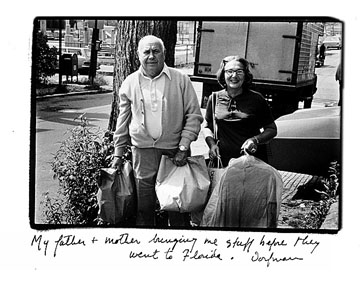 My father + mother bringing me stuff before they
went to Florida. Dorfman